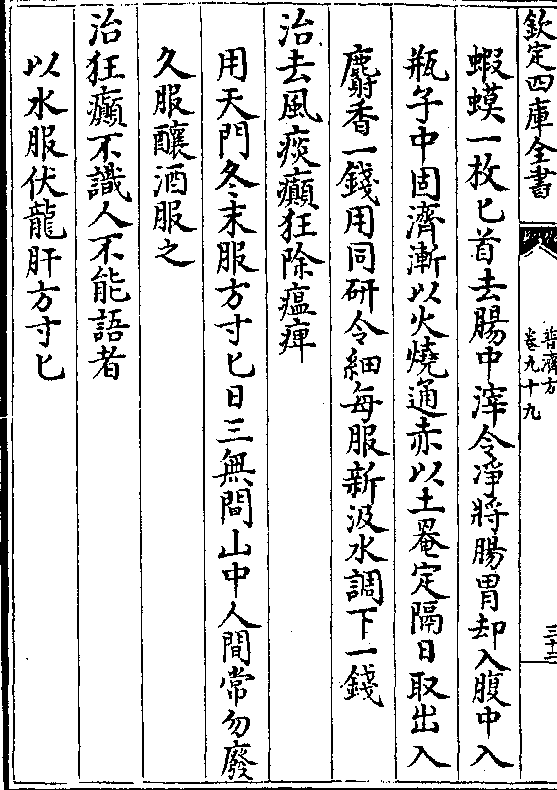 欽定四庫全書
普濟方
卷九十九
三十二
蝦蟆一枚匕首去腸中滓令凈將腸胃却入腹中入
瓶子中固濟漸以火燒通赤以土罨定隔日取出入
麝香一錢用同研令細每服新汲水調下一錢
治去風痰癲狂除瘟痺
用天門冬末服方寸匕日三無間山中人間常勿廢
久服釀酒服之
治狂癲不識人不能語者
以水服伏龍肝方寸匕